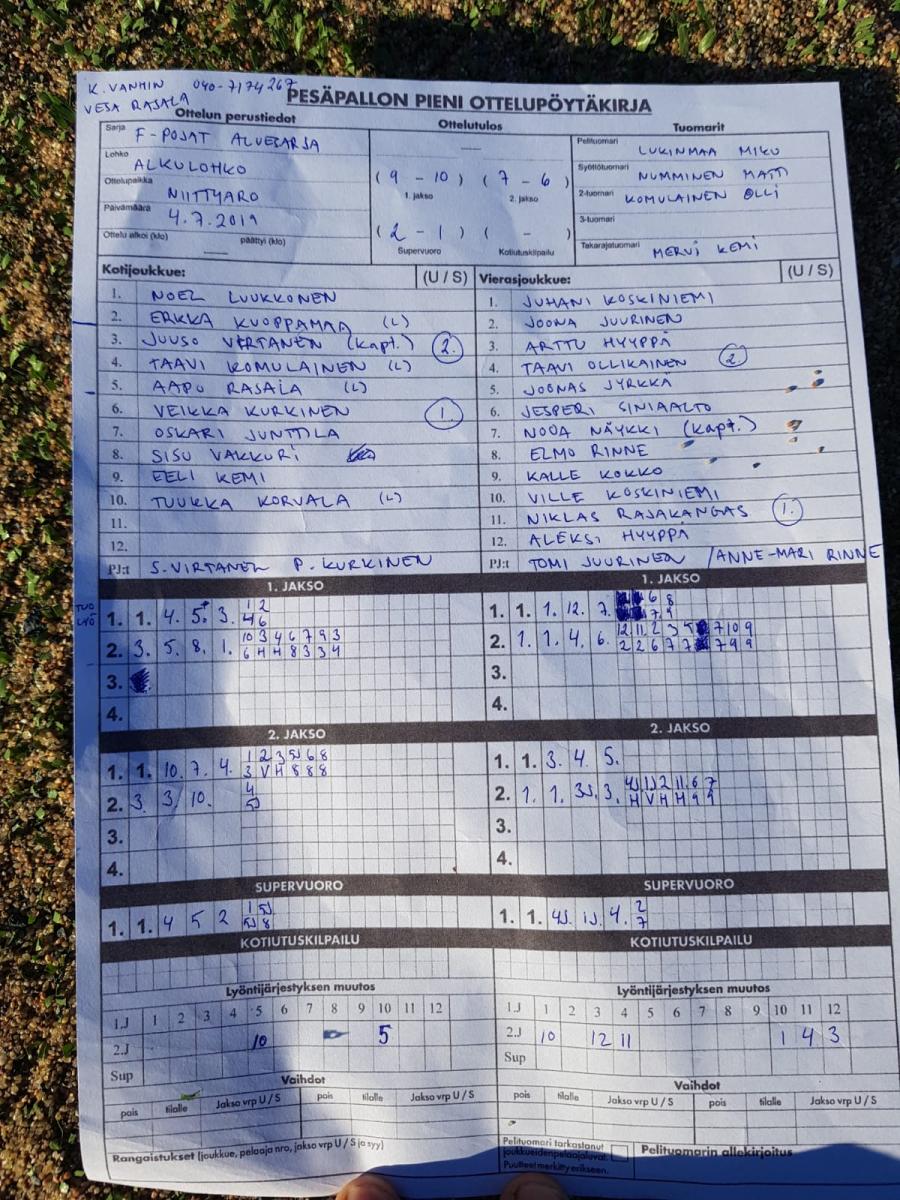 K. VANHIN 040-7174267
VESA RASALA
PESÄPALLON PIENI OTTELUPÖYTÄKIRJA
Ottelun perustiedot Ottelutulos Tuomarit
Sarja F-POJAT ALUESARJA
Lohko ALKULOHKO
Ottelupaikka NIITTYARO
Päivämäärä 4.7.2019
Ottelu alkoi (klo) päättyi (klo)
( 9 - 10 ) ( 7 - 6 )
1. jakso 2. jakso
( 2 - 1 ) ( - )
Supervuoro Kotiutuskilpailu
Pelituomari LUKINMAA MIKU
Syöttötuomari NUMMINEN MATTI
2-tuomari KOMULAINEN OLLI
3-tuomari
Takarajatuomari MERVI KEMI
Kotijoukkue: (U / S)
1. NOEL LUUKKONEN
2. ERKKA KUOPPAMAA (L)
3. JUUSO VIRTANEN (kapt.) 2.
4. TAAVI KOMULAINEN (L)
5. AAPO RASALA (L)
6. VEIKKA KURKINEN 1.
7. OSKARI JUNTTILA
8. SISU VAKKURI
9. EELI KEMI
10. TUUKKA KORVALA (L)
11.
12.
PJ:t S. VIRTANEN P. KURKINEN
Vierasjoukkue: (U / S)
1. JUHANI KOSKINIEMI
2. JOONA JUURINEN
3. ARTTU HYYPPÄ
4. TAAVI OLLIKAINEN 2
5. JOONAS JYRKKÄ
6. JESPERI SINIAALTO
7. NOOA NÄYKKI (kapt.)
8. ELMO RINNE
9. KALLE KOKKO
10. VILLE KOSKINIEMI
11. NIKLAS RAJAKANGAS 1.
12. ALEKSI HYYPPÄ
PJ:t TOMI JUURINEN / ANNE-MARI RINNE
1. JAKSO
TUO 1 2
LYÖ 1. 1. 4. 5. 3. 4 6
10 3 4 6 7 9 3
2. 3. 5. 8. 1. 6 H H 8 3 3 4
3.
4.
1. JAKSO
6 8
1. 1. 1. 12. 7. 7 9
12 11 2 3 5 7 10 9
2. 1. 1. 4. 6. 2 2 6 7 7 7 9 9
3.
4.
2. JAKSO
1 2 3 5J 6 8
1. 1. 10. 7. 4. 3 V H 8 8 8
4
2. 3. 3. 10. 5J
3.
4.
2. JAKSO
1. 1. 3. 4. 5.
4J 1J 2 11. 6 7
2. 1. 1. 3J. 3. H V H H 9 9
3.
4.
SUPERVUORO
1 5J
1. 1. 4 5 2 5J 8
SUPERVUORO
2
1. 1. 4J. 1J. 4. 7
KOTIUTUSKILPAILU
KOTIUTUSKILPAILU
Lyöntijärjestyksen muutos
1.J 1 2 3 4 5 6 7 8 9 10 11 12
2.J 10 5
Sup
Lyöntijärjestyksen muutos
1.J 1 2 3 4 5 6 7 8 9 10 11 12
2.J 10 12 11 1 4 3
Sup
Vaihdot
pois tilalle Jakso vrp U / S pois tilalle Jakso vrp U / S
Vaihdot
pois tilalle Jakso vrp U / S pois tilalle Jakso vrp U / S
Rangaistukset (joukkue, pelaaja nro, jakso vrp U / S ja syy)
Pelituomari tarkastanut
joukkueidenpelaajaluvat:
Puutteet merkitty erikseen.
Pelituomarin allekirjoitus